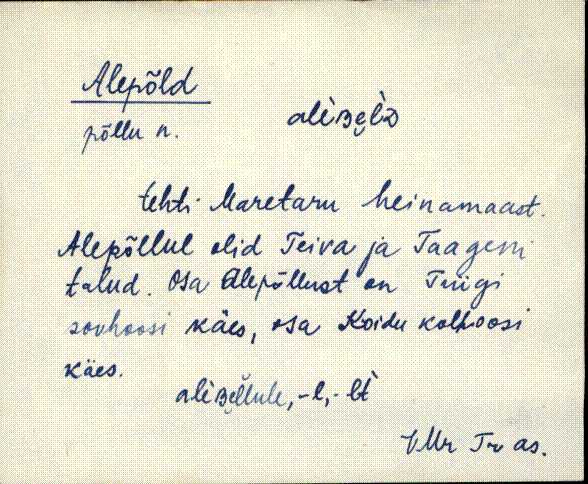 Alepõld
põllu n.
aliʙe̮lᴅ
tehti Maretaru heinamaast.
Alepõllul olid Teiva ja Taageni
talud. Osa Alepõllust on Tüügi
sovhoosi käes, osa Koidu kolhoosi
käes.
aliʙe̮llule, -l, - lt
VMr Tr as.